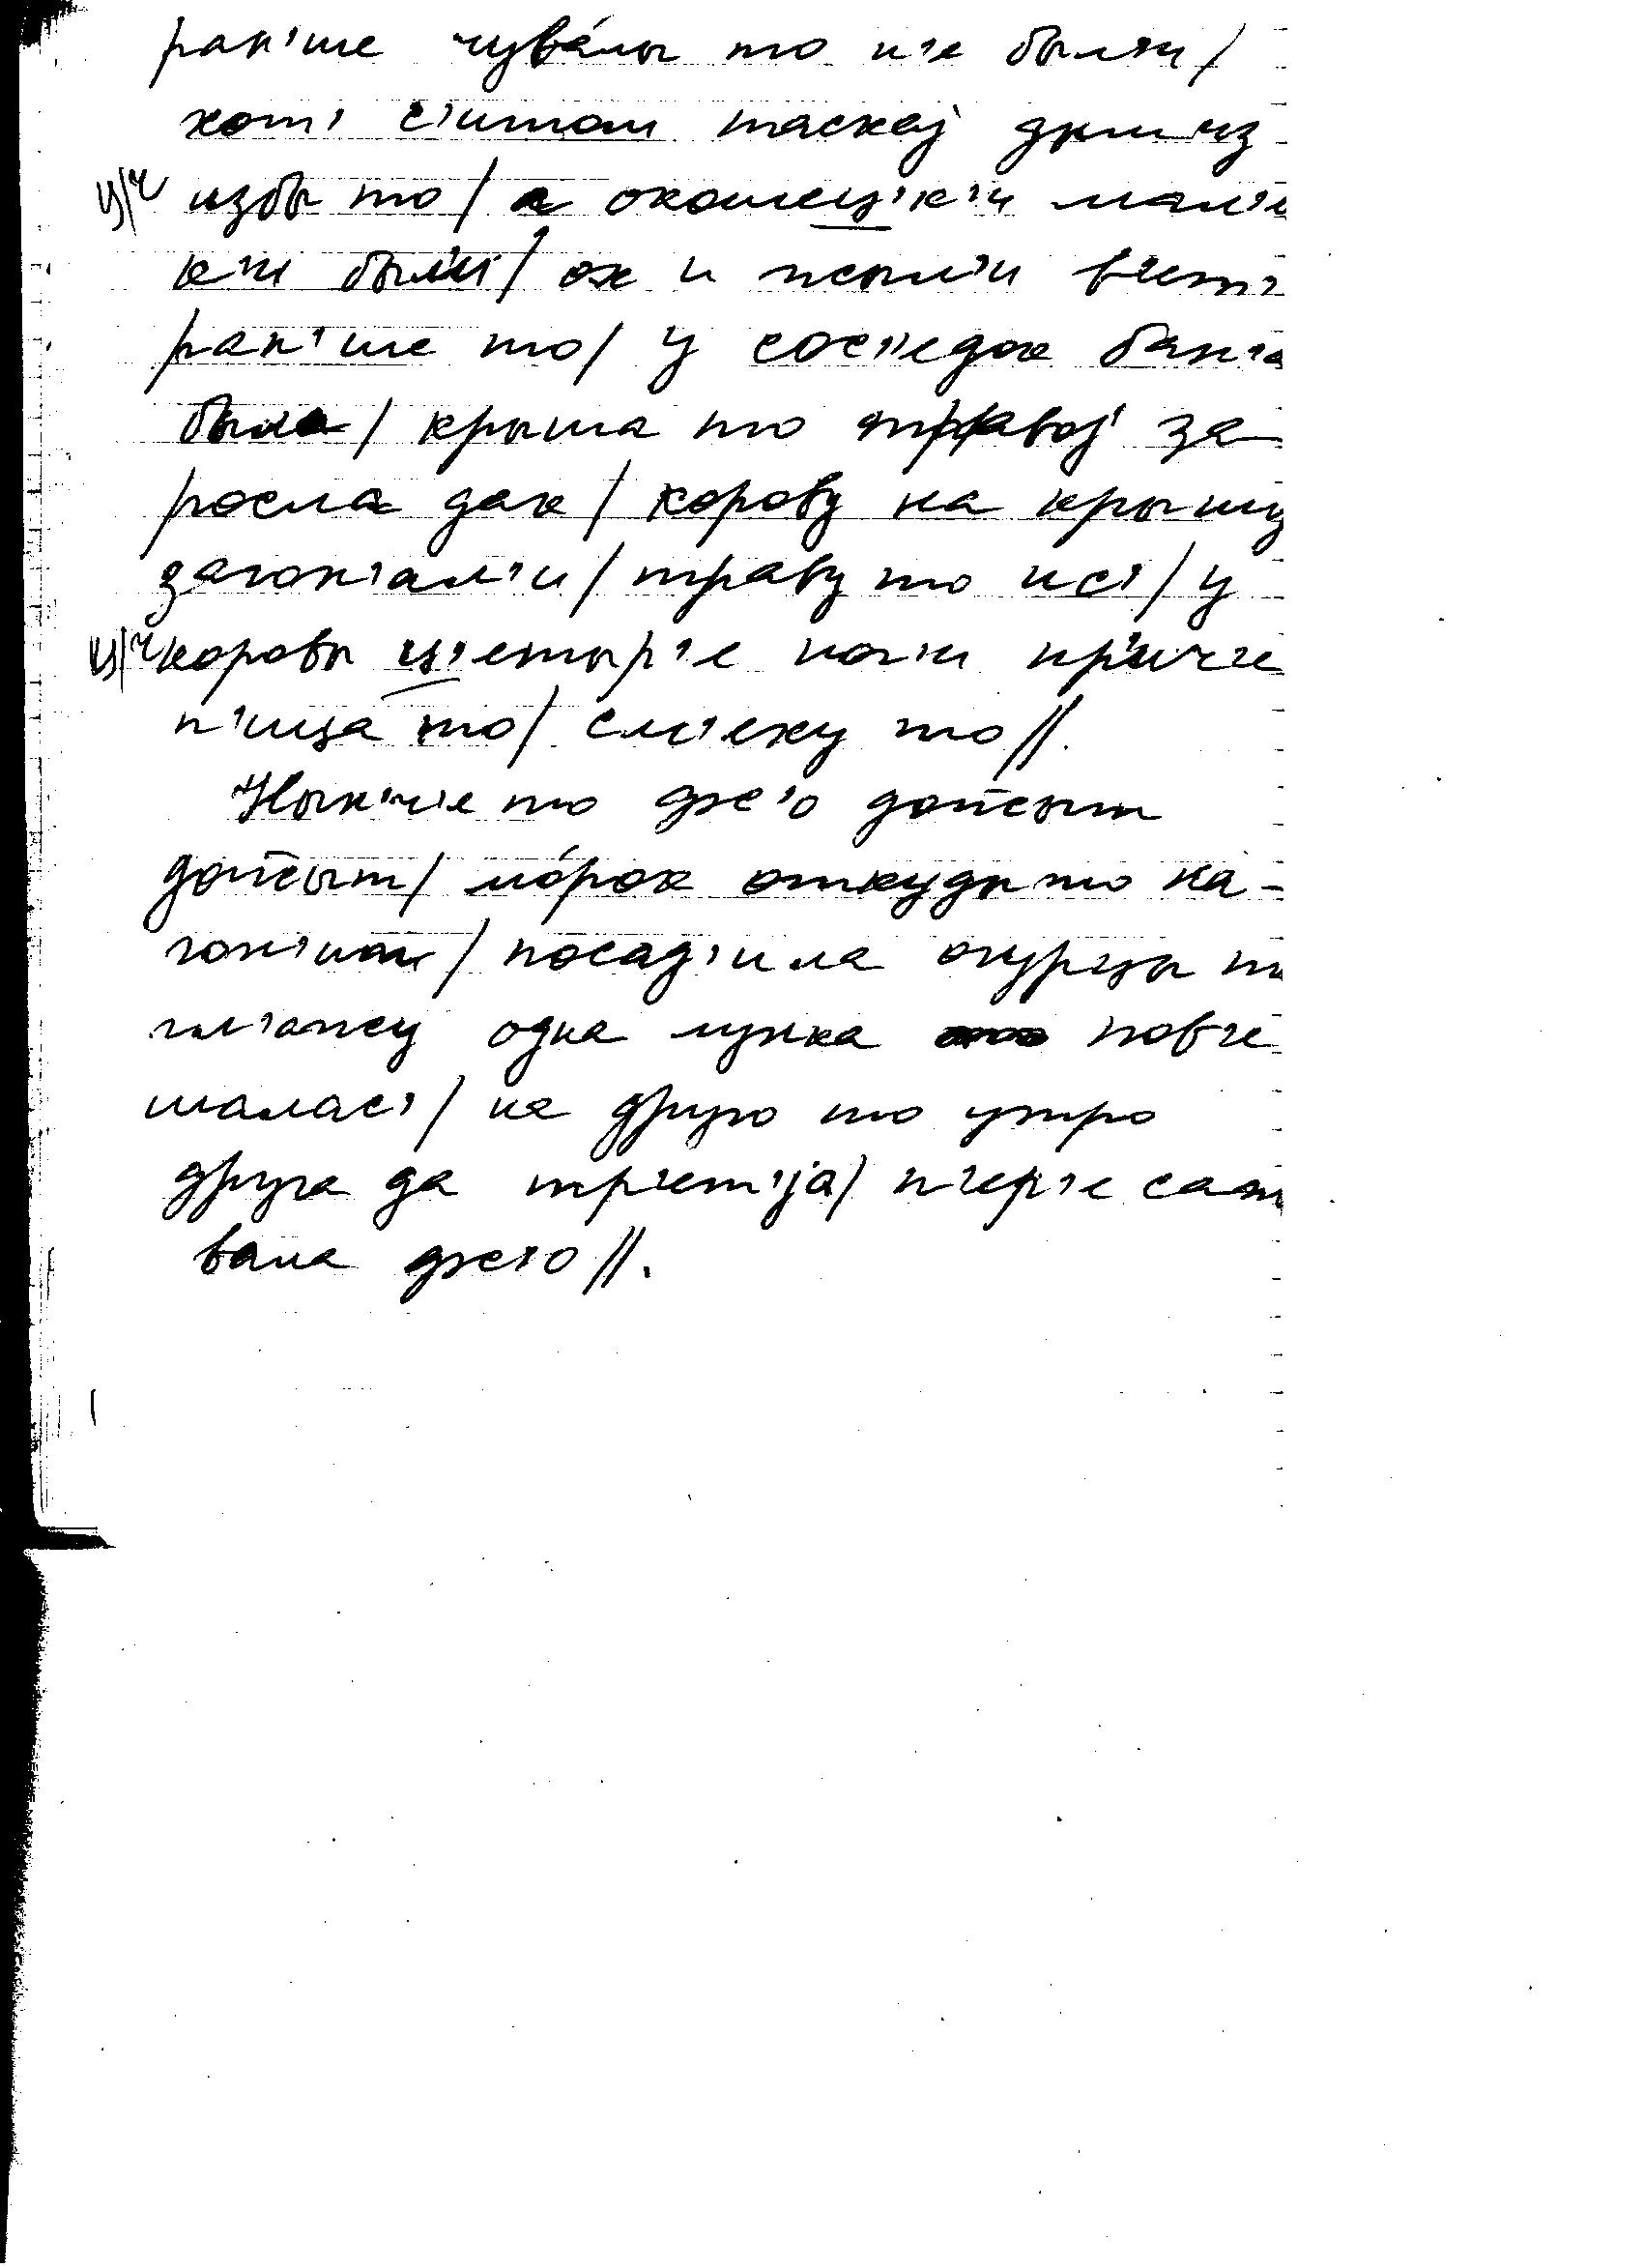 ран'ше чува́лы то н'е был'и/
хот' с'итом таскај дым из
ц/ч избы то/ а окошец'к'и мал'ин
к'и был'и/ ох и жыл'и в'ет'
ран'ше то/ у сос'едох бан'а
была/ крыша то травој за
росла дак/ корову на крышу
загон'ал'и/ траву то ис'/ у
ц/ч коровы ц'етыр'е ноги пр'ич'е
п'ица то/ см'еху то//.
Нын'ч'е то дж'о
мо́рок откуды то на-
гон'ит/ посад'ила огурцы
гл'анку одна лунка пов'е
шалас'/ на друго то утро
друга да тр'ет'ја/ п'ер'е са
вала //.